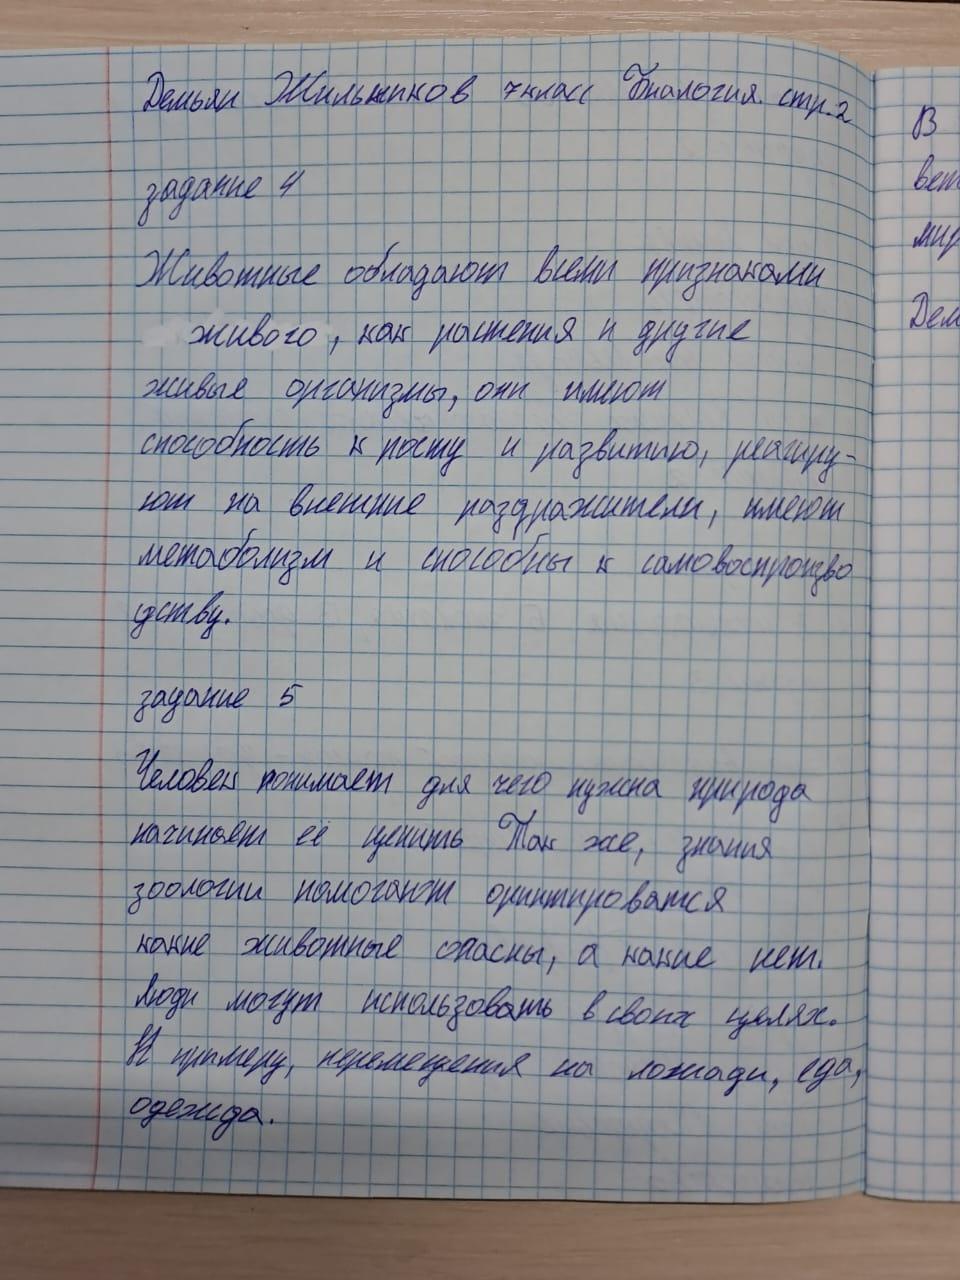 Демьян Жильников 7класс Биалогия. стр.2
В
задание 4
вет
мир
Животные обладают всеми признаками
живого, как растения и другие
Дем
живые организмы, они имеют
способность к росту и развитию, реагиру-
ют на внешние раздражители, имеют
метаболизм и способны к самовоспроизво
дству.
задание 5
Человек понимает для чего нужна природа
начинает её ценить Так же, знания
зоологии помогают ориптироватся
какие животные опасны, а какие нет.
Люди могут использовать в своих целях.
К примеру, перемещения на лошади, еда,
одежда.